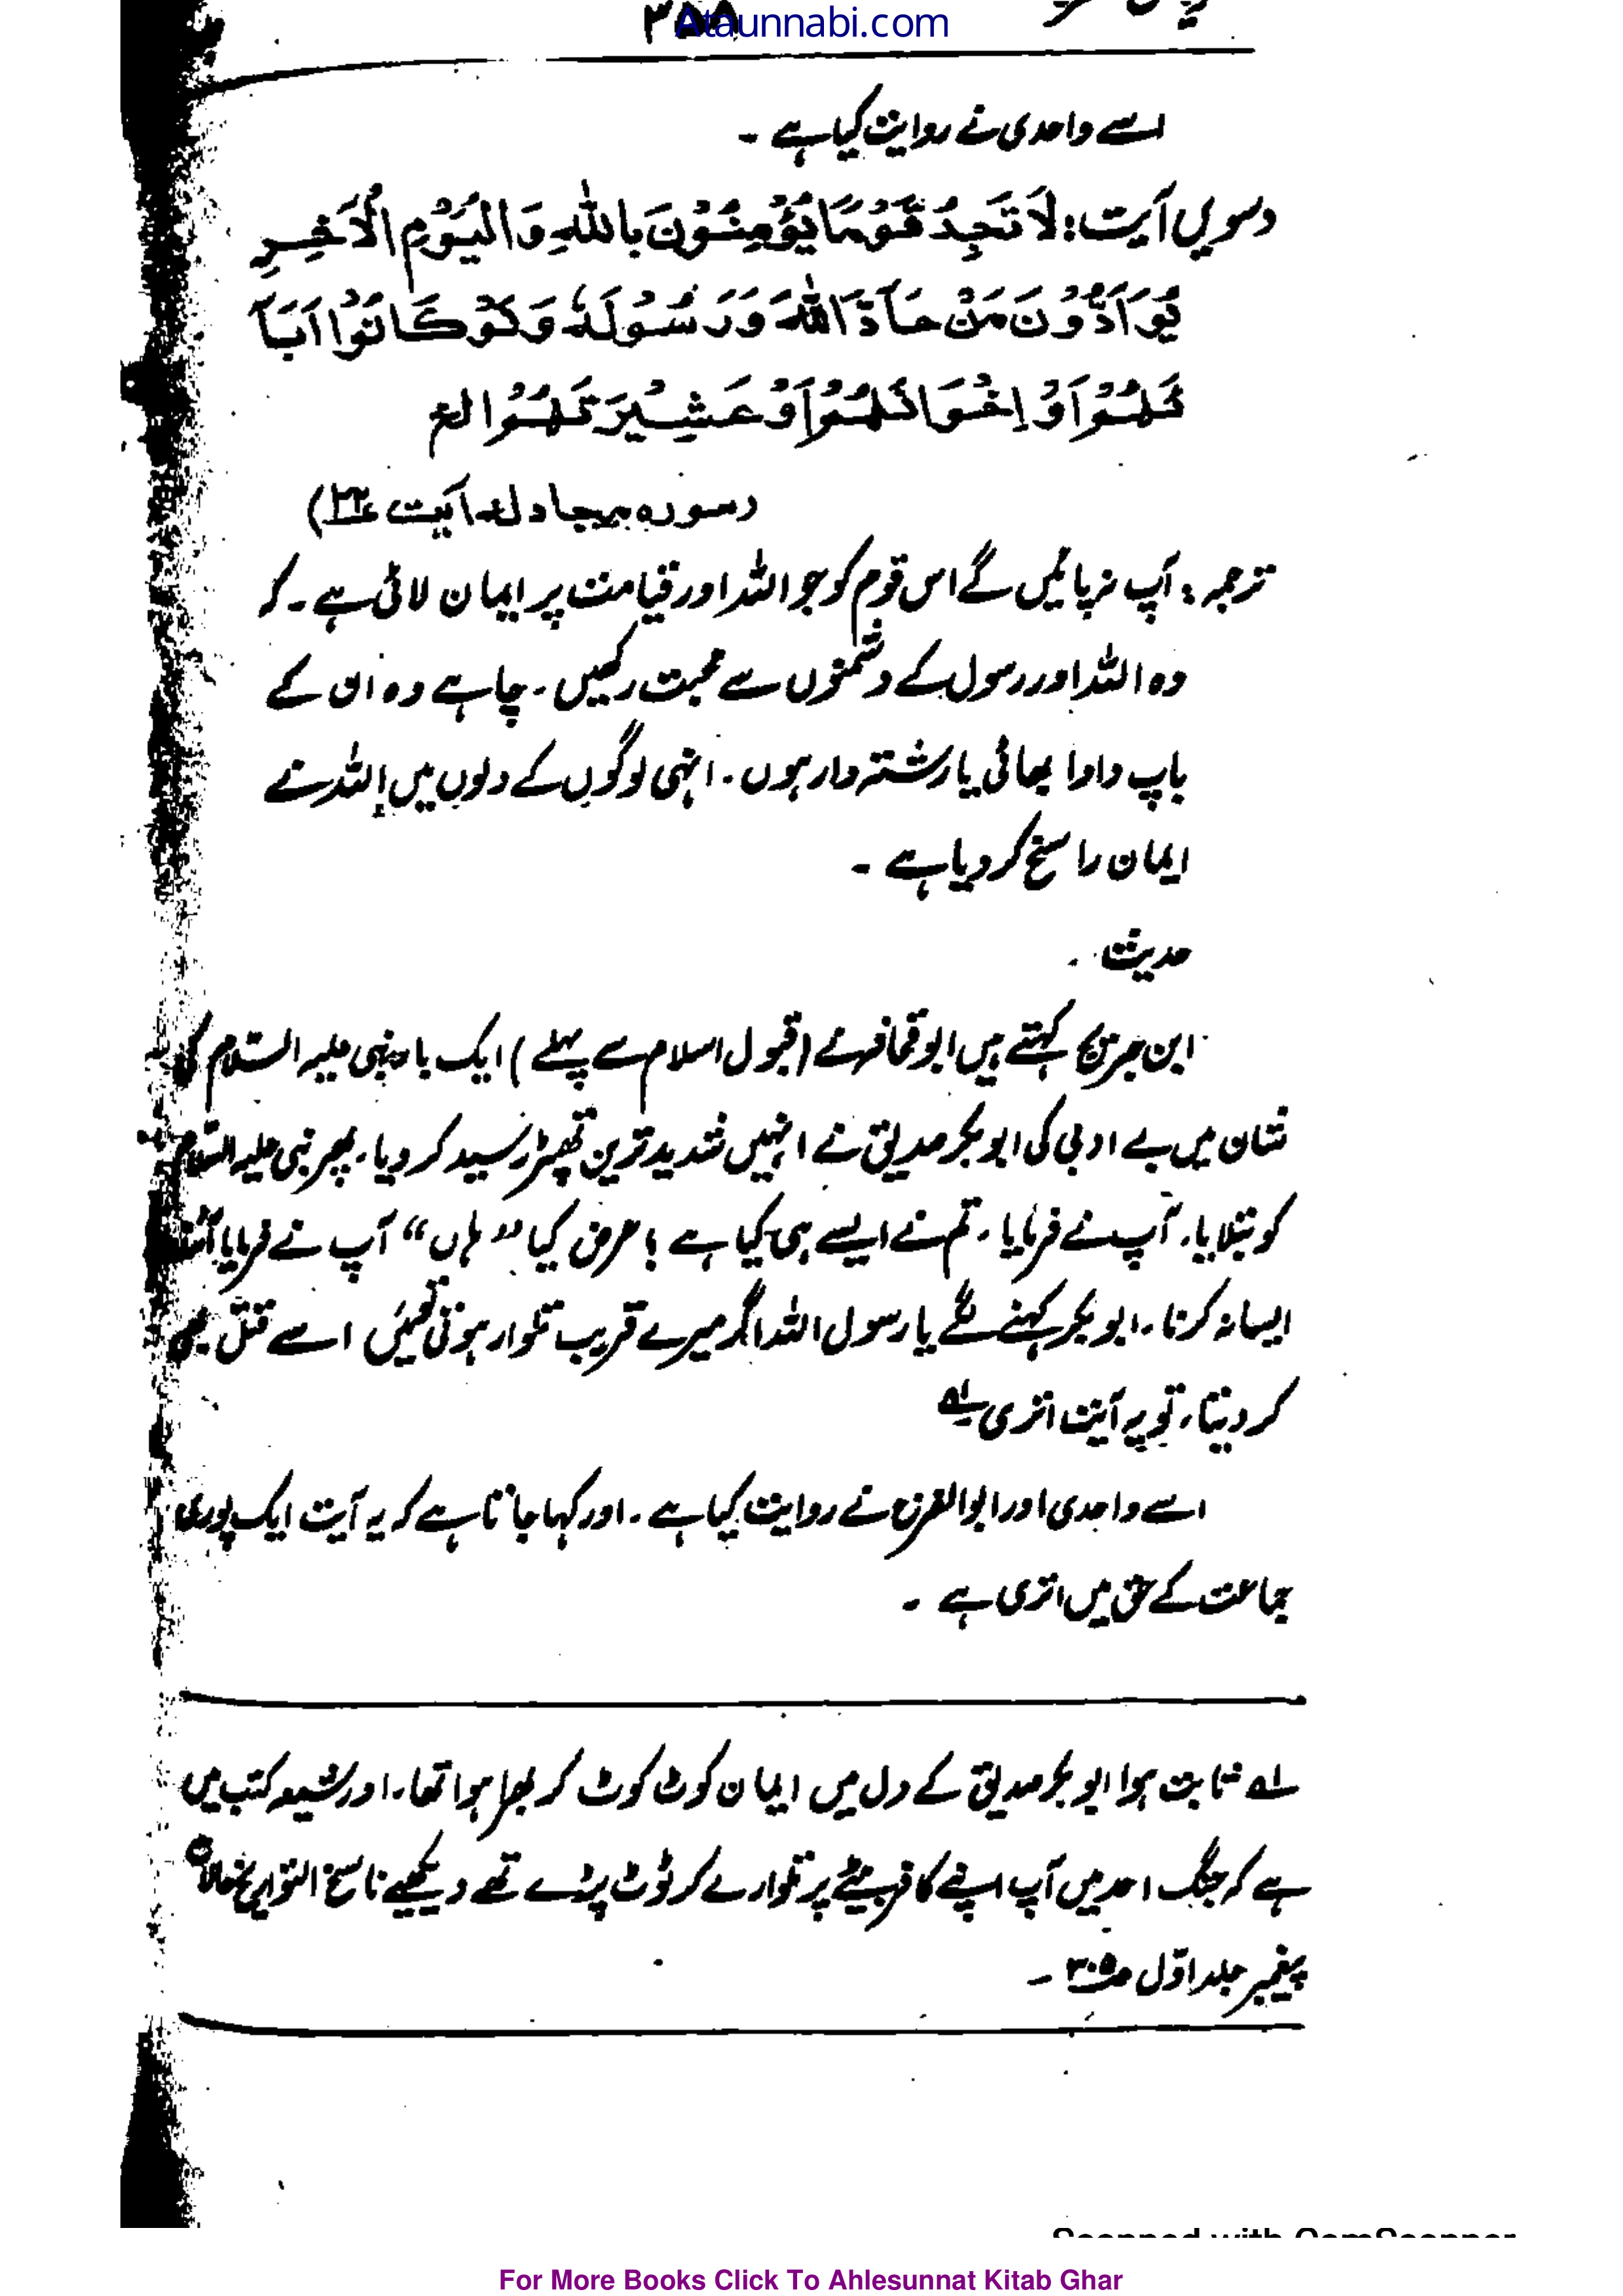 Ataunnabi.com
۳۵۵
اسے واحدی نے روایت کیا ہے ۔
دسویں آیت: لَا تَجِدُ قَوْمًا یُؤْمِنُوْنَ بِاللهِ وَالْیَوْمِ الْاٰخِرِ
یُوَآدُّوْنَ مَنْ حَآدَّ اللهَ وَرَسُوْلَهٗ وَلَوْ كَانُوْا اٰبَآ
ئَهُمْ اَوْ اِخْوَانَهُمْ اَوْ عَشِیْرَتَهُمْ الخ
(سورہ مجادلہ آیت ۲۲)
ترجمہ : آپ نہ پائیں گے اس قوم کو جو اللہ اور قیامت پر ایمان لائی ہے ۔ کہ
وہ اللہ اور رسول کے دشمنوں سے محبت رکھیں ۔ چاہے وہ ان کے
باپ دادا بھائی یا رشتہ دار ہوں ۔ انہی لوگوں کے دلوں میں اللہ نے
ایمان راسخ کر دیا ہے ۔
حدیث ۔
ابن جریج کہتے ہیں ابو قحافہ نے (قبول اسلام سے پہلے ) ایک بار نبی علیہ السلام کی
شان میں بے ادبی کی ابو بکر صدیق نے انہیں شدید ترین تھپڑ رسید کر دیا ۔ پھر نبی علیہ السلام
کو بتلایا ۔ آپ نے فرمایا ۔ تم نے ایسے ہی کیا ہے ؟ عرض کیا ”ہاں“ آپ نے فرمایا
ایسا نہ کرنا ۔ ابو بکر کہنے لگے یا رسول اللہ اگر میرے قریب تلوار ہوتی تو میں اسے قتل بھی
کر دیتا ، تو یہ آیت اتری لہ
اسے واحدی اور ابوالفرج نے روایت کیا ہے ۔ اور کہا جاتا ہے کہ یہ آیت ایک پوری
جماعت کے حق میں اتری ہے ۔
لہ ثابت ہوا ابو بکر صدیق کے دل میں ایمان کوٹ کوٹ کر بھرا ہوا تھا ۔ اور شیعہ کتب میں
ہے کہ جنگ احد میں آپ اپنے کافر بیٹے پر تلوار لے کر ٹوٹ پڑے تھے دیکھیے ناسخ التواریخ حالات
پیغمبر جلد اوّل ص۳۰۵ ۔
For More Books Click To Ahlesunnat Kitab Ghar